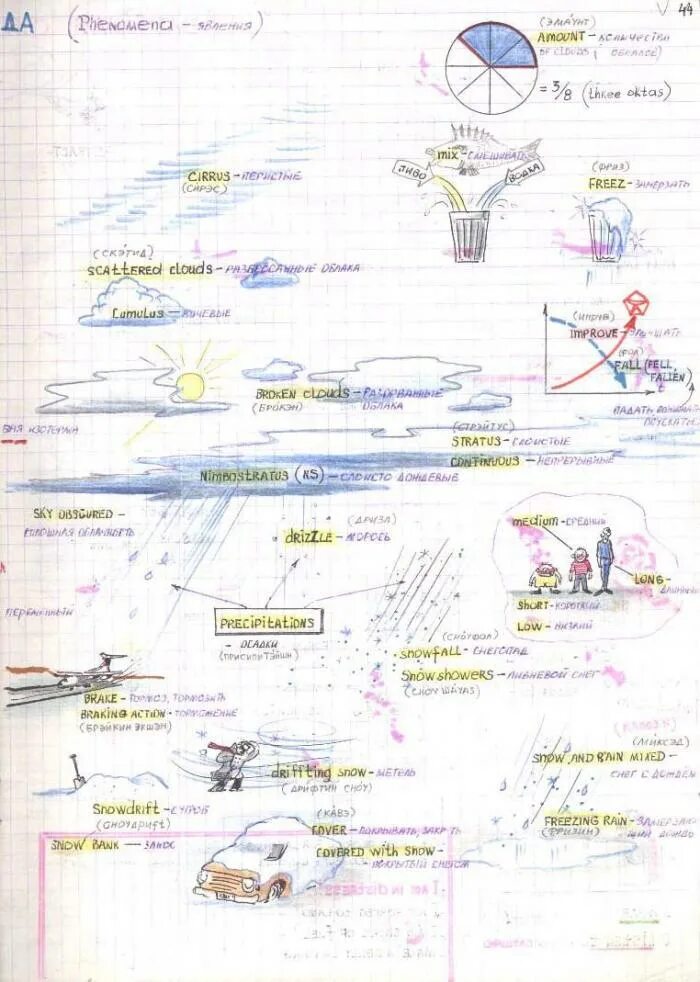 ДА (Phenomena - явления) 44
(ЭМАУНТ)
AMOUNT - КОЛИЧЕСТВО
OF CLOUDS
= 3/8 (three oktas)
mix - СМЕШИВАТЬ
ПИВО
ВОДКА
(ФРИЗ)
FREEZ - ЗАМЕРЗАТЬ
CIRRUS - ПЕРИСТЫЕ
(СИРЭС)
(СКЭТИД)
SCATTERED clouds - РАЗБРОСАННЫЕ ОБЛАКА
Cumulus - КУЧЕВЫЕ
(ИПРУВ)
IMPROVE
(ФОЛ)
FALL (FELL,
FALLEN)
t
BROKEN clouds - РАЗОРВАННЫЕ
(БРОКЭН) ОБЛАКА
ПАДАТЬ
(СТРЭЙТУС)
STRATUS - СЛОИСТЫЕ
CONTINUOUS - НЕПРЕРЫВНЫЕ
ВНЯ ИЗОТЕРМИ
NIMBOSTRATUS (NS) - СЛОИСТО ДОЖДЕВЫЕ
SKY OBSCURED -
СПЛОШНАЯ ОБЛАЧНОСТЬ
(ДРИЗЛ)
drizzle - МОРОСЬ
medium - СРЕДНИЙ
LONG -
ДЛИННЫЙ
SHORT - КОРОТКИЙ
LOW - НИЗКИЙ
ПЕРЕМЕННЫЙ
PRECIPITATIONS
- ОСАДКИ
(ПРИСИПИТЭЙШН)
(СНОУФОЛ)
snowfall - СНЕГОПАД
Snow showers - ЛИВНЕВОЙ СНЕГ
(СНОУ ШАУАS)
BRAKE - ТОРМОЗ, ТОРМОЗИТЬ
BRAKING ACTION - ТОРМОЖЕНИЕ
(БРЭЙКИН ЭКШЭН)
(МИКСЭД)
SNOW AND RAIN MIXED -
СНЕГ С ДОЖДЕМ
driffting snow - МЕТЕЛЬ
(ДРИФТИН СНОУ)
Snowdrift - СУГРОБ
(СНОУДРИФТ)
SNOW BANK — ЗАНОС
(КАВЭ)
COVER - ПОКРЫВАТЬ, ЗАКРЫТЬ
COVERED with snow -
ПОКРЫТЫЙ СНЕГОМ
FREEZING RAIN - ЗАМЕРЗАЮ-
(ФРИЗИН) ЩИЙ ДОЖДЬ